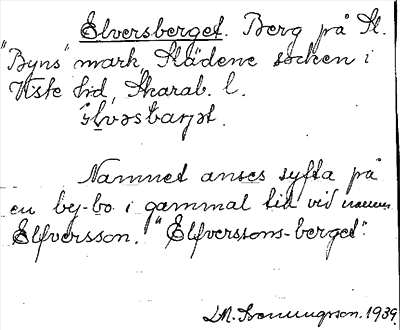 Elversberget. Berg på St.
"Byns" mark, Slädene socken i
Viste hd, Skarab. l.
Namnet anses syfta på
en by-bo i gammal tid vid namn
Elfversson. "Elfverssons-berget".
1939.